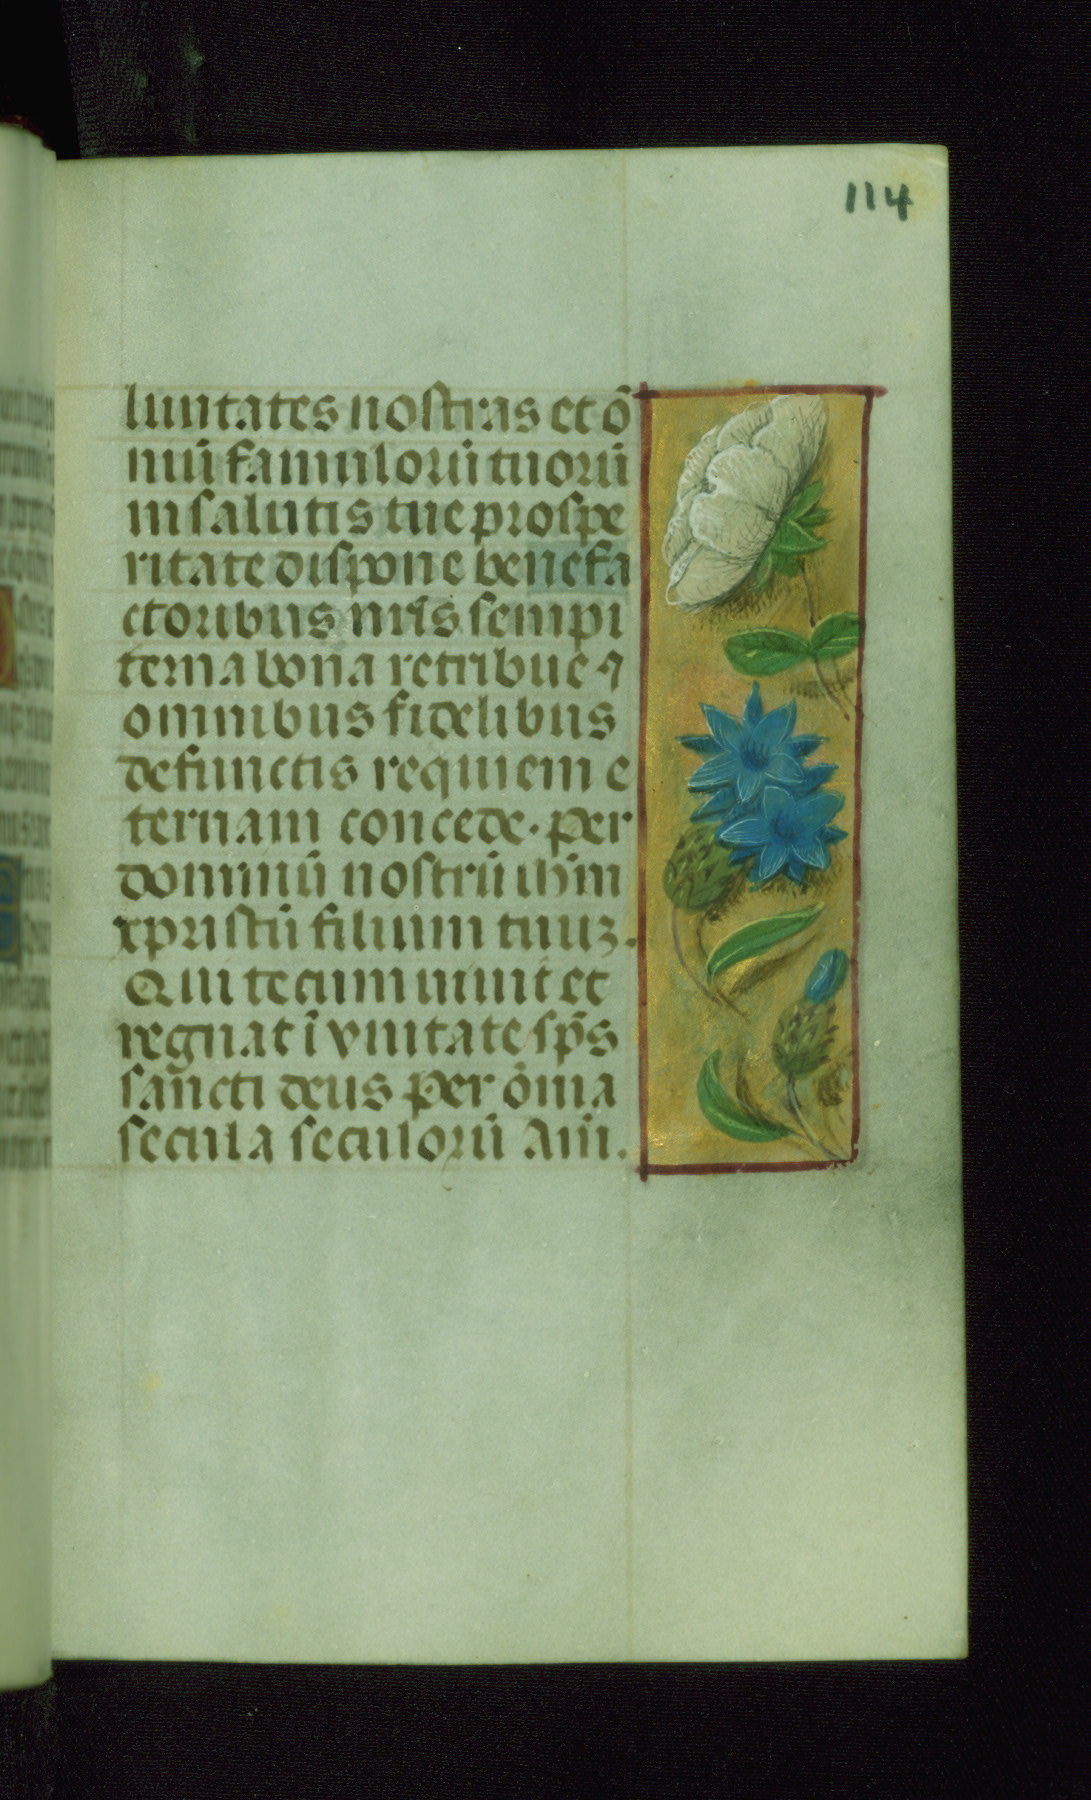 114
luntates nostras et o᷑
niū famulorū tuorū
in salutis tue prospe
ritate dispone benefa
ctoribus nr̄is sempi
terna bona retribue ⁊
omnibus fidelibus
defunctis requiem e
ternam concede. Per
dominū nostrū ihm̄
xpristū filium tuuz.
Qui tecum uiuit et
regnat ī vnitate sp̄s
sancti deus Per om̄ia
secula seculorū Am̄.